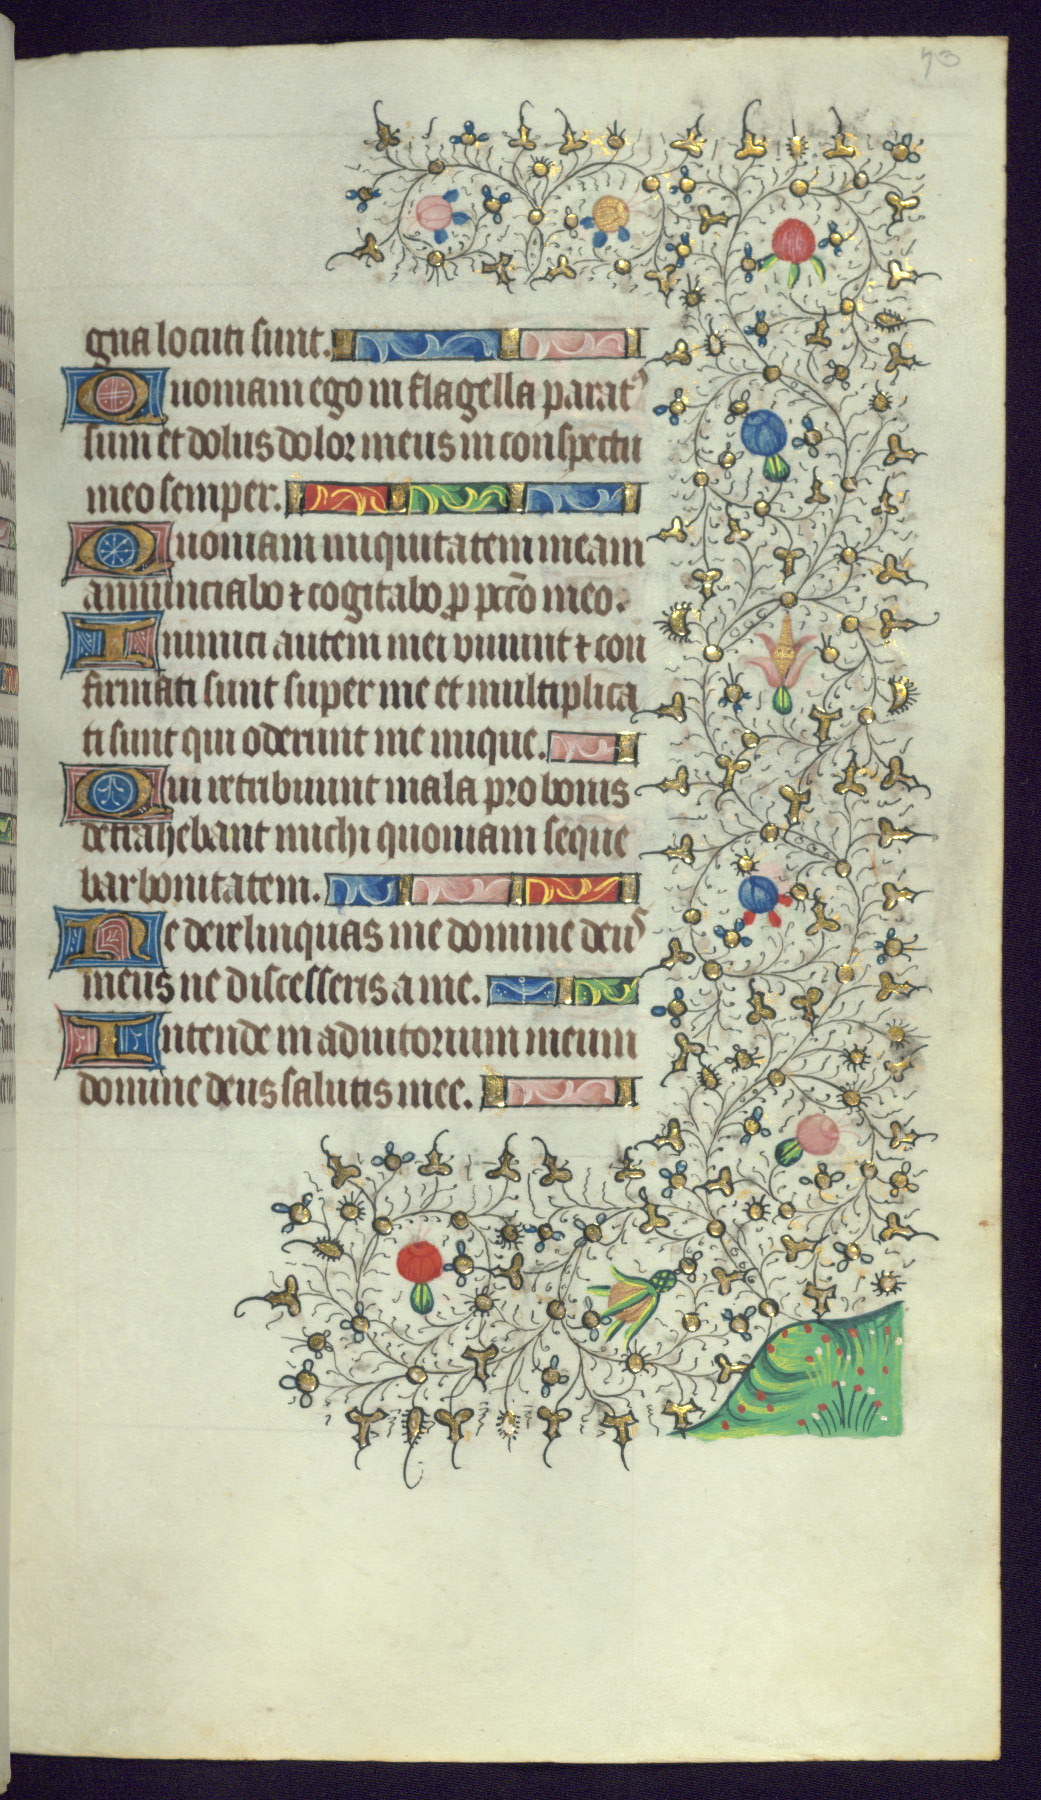 73
gna locuti sunt.
Quoniam ego in flagella parat⁹
sum et dolus dolor meus in conspectu
meo semper.
Quoniam iniquitatem meam
annunciabo ⁊ cogitabo ꝓ pctō meo.
Inimici autem mei viuunt ⁊ con
firmati sunt super me et multiplica
ti sunt qui oderunt me inique.
Qui retribuunt mala pro bonis
detrahebant michi quoniam seque
bar bonitatem.
Ne derelinquas me domine deus
meus ne discesseris a me.
Intende in adiutorium meum
domine deus salutis mee.